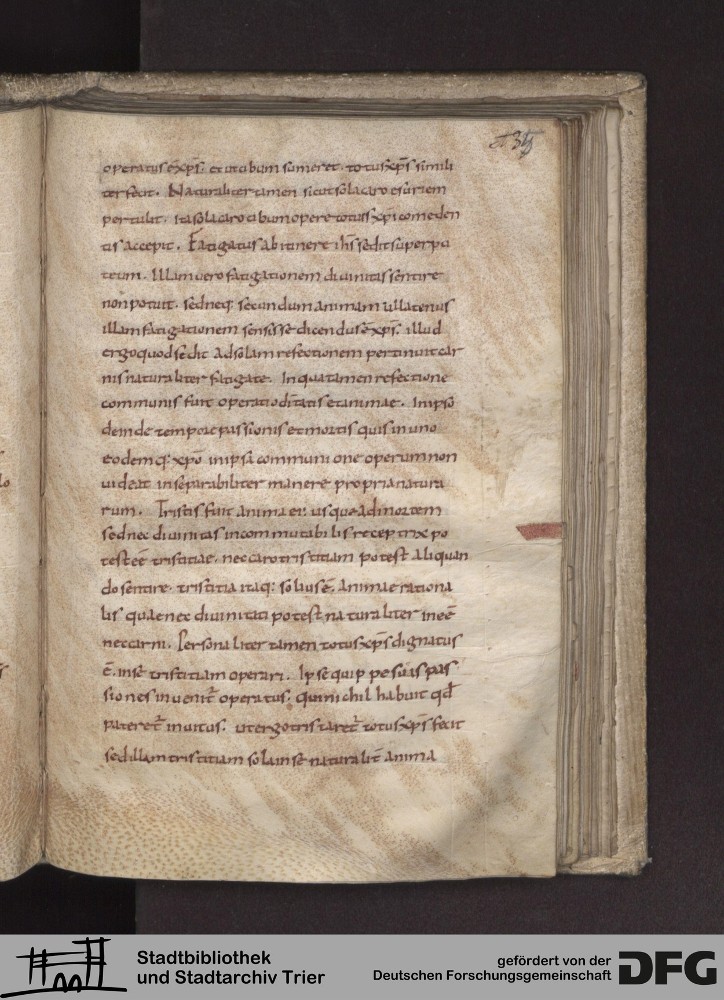 operatus ē xp̄s. et ut cibum sumeret. totus xp̄s simili
ter fecit. Naturaliter tamen sicut sola caro esuriem
pertulit. ita sola caro cibum opere totius xpi comeden
tis accepit. Fatigatus ab itinere ih̄s sedit super pu
teum. Illam vero fatigationem divinitas sentire
non potuit. sed neq; secundum animam ullatenus
illam fatigationem sensisse dicendus ē xp̄s. illud
ergo quod sedit ad solam refectionem pertinuit car
nis naturaliter fatigate. In qua tamen refectione
communis fuit operatio deitatis et animae. In ipso
deinde tempore passionis et mortis quis in uno
eodemq; xpo in ipsa communione operum non
videat inseparabiliter manere propria natura
rum. Tristis fuit anima ei' usque ad mortem
sed nec divinitas incommutabilis receptrix po
test eē tristitiae. nec caro tristitiam potest aliquan
do sentire. tristitia itaq; solius ē animae rationa
lis quae nec divinitati potest naturaliter ineē
nec carni. Personaliter tamen totus xp̄s dignatus
ē. in se tristitiam operari. Ipse quippe suis pas
siones invenit operatus. qui nichil habuit qd̄
pateret̄ invitus. ut ergo tristaret̄ totus xp̄s fecit
sed illam tristitiam sola in se naturalit̄ anima
Stadtbibliothek
und Stadtarchiv Trier
gefördert von der
Deutschen Forschungsgemeinschaft
DFG